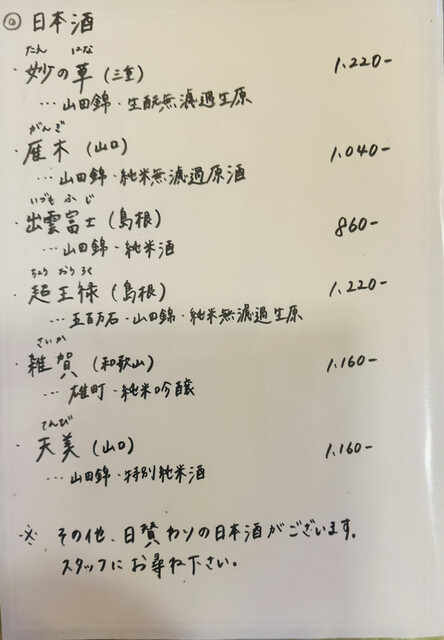 ◎ 日本酒
たん はな
・妙の華 (三重) 1,220-
… 山田錦・生酛無濾過生原
がんぎ
・雁木 (山口) 1,040-
… 山田錦・純米無濾過原酒
いづも ふじ
・出雲富士 (島根) 860-
… 山田錦・純米酒
ちょう おう ろく
・超王禄 (島根) 1,220-
… 五百万石・山田錦・純米無濾過生原
さいか
・雑賀 (和歌山) 1,160-
… 雄町・純米吟醸
てんび
・天美 (山口) 1,160-
… 山田錦・特別純米酒
※ その他、日替わりの日本酒がございます。
スタッフにお尋ね下さい。